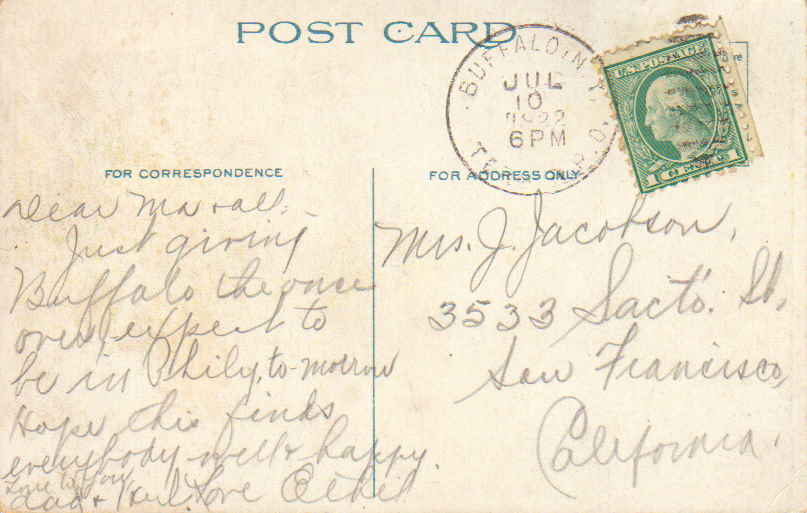 POST CARD
BUFFALO, N.Y.
JUL
10
1922
6PM
U.S. POSTAGE
1 CENT 1
FOR CORRESPONDENCE
Dear Ma & all,
Just giving
Buffalo the once
over, expect to
be in Phily, to-morrow
Hope this finds
everybody well & happy.
Love to you
dad & Love Ethel
FOR ADDRESS ONLY
Mrs. J. Jacobson,
3533 Sact'o. St,
San Francisco,
California.